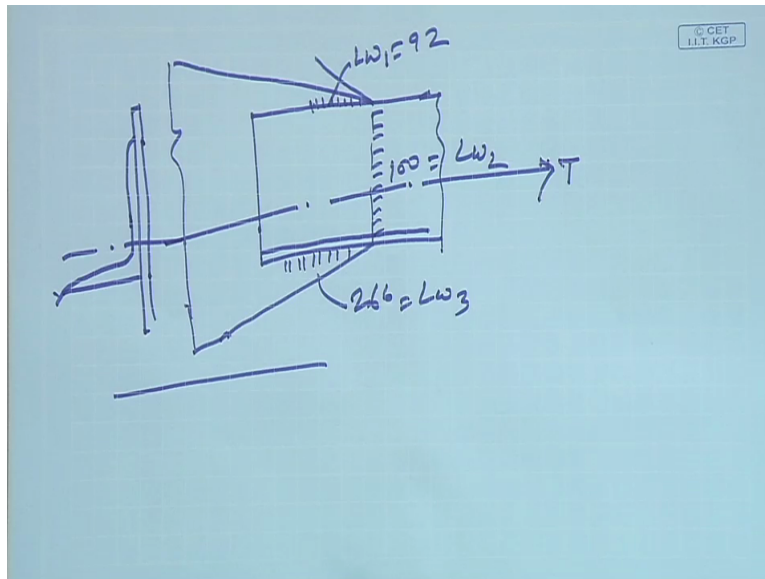 © CET
I.I.T. KGP
Lw₁=92
100 = Lw₂
T
266 = Lw₃